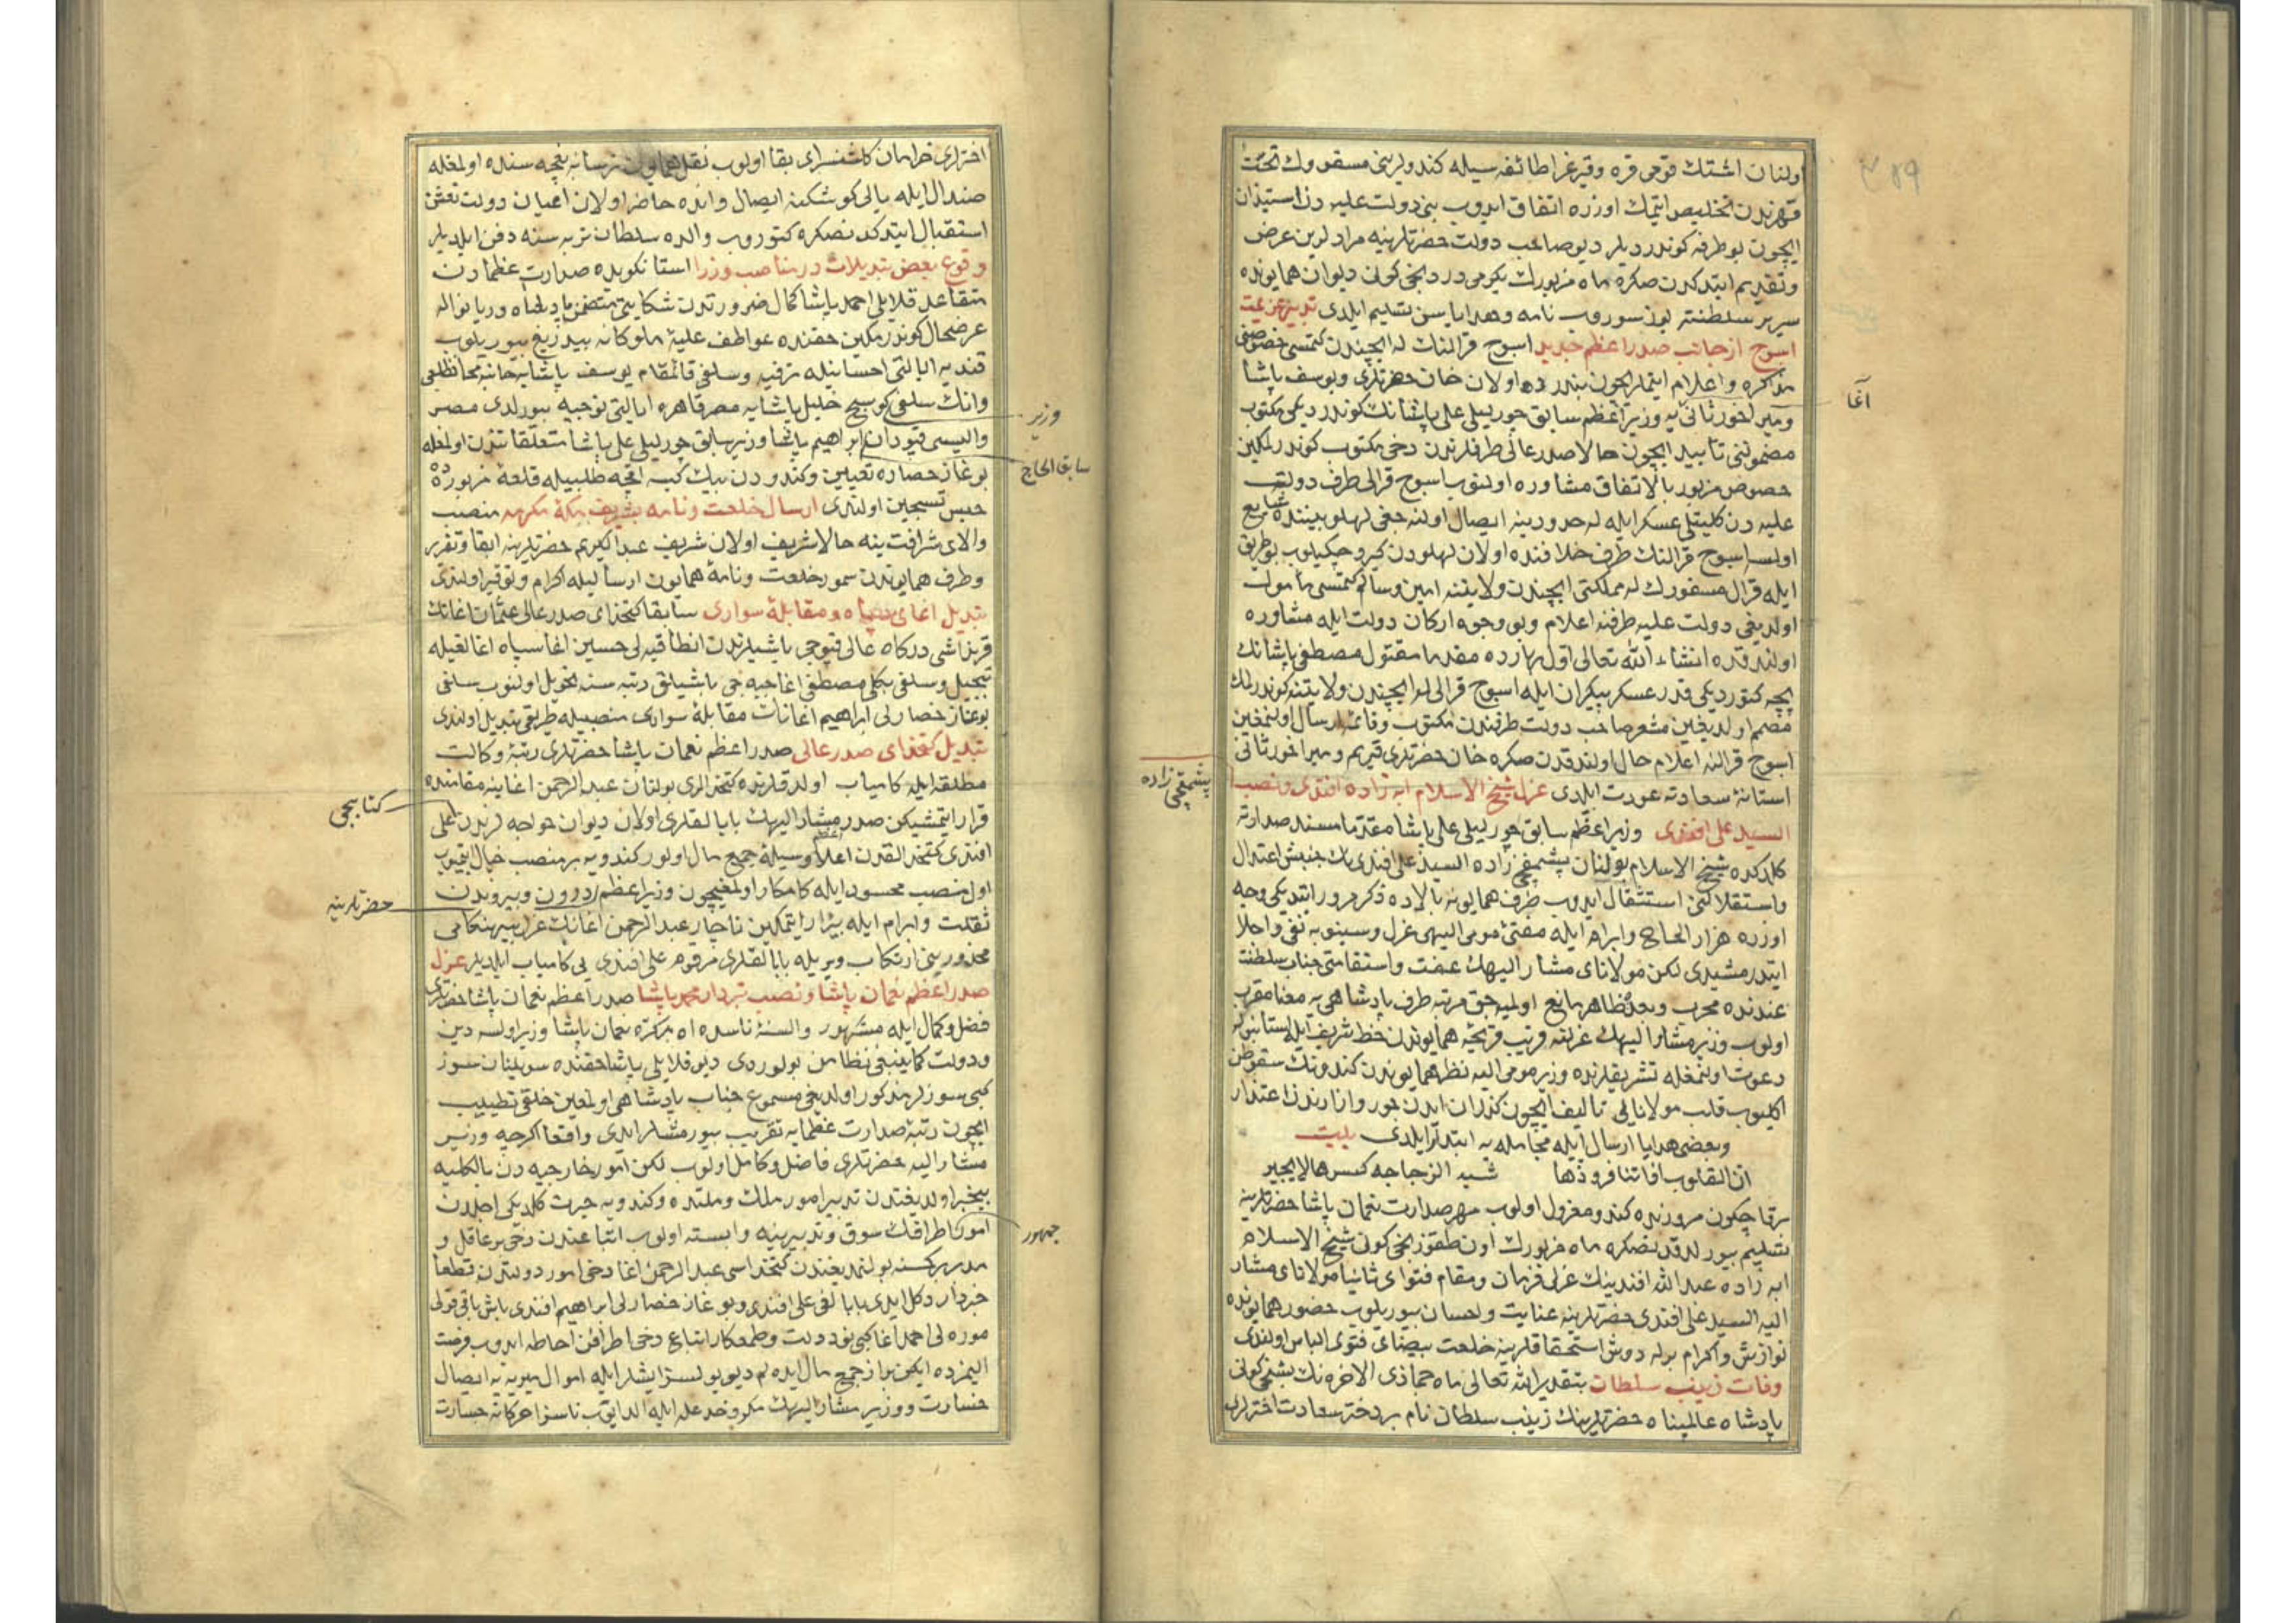 اولنان اشتك قومی قره وقیرغز اطائفه سیله کندولرینی مسقو ولك تحت
قهرندن تخلیص ایتمك اوزره اتفاق ایدوب بنی دولت علیه دن استیذان
ایچون بو طرفه کوندردیلر دیو صاحب دولت حضرتلرینه مرادلرین عرض
وتقدیم ایتدکدن صکره ماه مزبورك یکرمی دردنجی کونی دیوان همایونده
سریر سلطنته یوز سوروب نامه وهدایاسن تسلیم ایلدی تدبیر عزیمت
اسوج از جانب صدراعظم جدید اسوج قرالنك له ایچندن کتمسی خصوصنی
مذاکره واعلام ایتملر ایچون بندرده اولان خان حضرتلری ویوسف پاشا
آغا
ومیراخور ثانی یه وزیراعظم سابق چورلیلی علی پاشانك کوندردیکی مکتوب
مضمونی تأیید ایچون حالا صدر عالی طرفلرندن دخی مکتوب کوندرلمکین
خصوص مزبور بالاتفاق مشاوره اولنوب اسوج قرالی طرف دولت
علیه دن کلیتلی عسکر ایله له حدودینه ایصال اولنه جغی لهلو بیننده شایع
اولسه اسوج قرالنك طرف خلافنده اولان لهلودن کیرو چکیلوب بو طریق
ایله قرال مسفورك له مملکتی ایچندن ولایتنه امین وسالم کتمسی مأمول
اولدیغی دولت علیه طرفنه اعلام وبو وجوه ارکان دولت ایله مشاوره
اولندقده انشاء الله تعالی اول بهارده مقدما مقتول مصطفی پاشانك
بچه کتوردیکی قدر عسکر بیکران ایله اسوج قرالی له ایچندن ولایتنه کوندرلمك
مصمم اولدیغین مشعر صاحب دولت طرفندن مکتوب وقائمه ارسال اولنمغین
اسوج قرالنه اعلام حال اولندقدن صکره خان حضرتلری قریم ومیراخور ثانی
استانۀ سعادته عودت ایلدی عزل شیخ الاسلام ابه زاده افندی ونصب
پشمقچی زاده
السید علی افندی وزیراعظم سابق چورلیلی علی پاشا مقدما مسند صدارته
کلدکده شیخ الاسلام بولنان پشمقچی زاده السید علی افندی نك جنبش اعتدال
واستقلالنی استثقال ایدوب طرف همایونه بالاده ذکر مرور ایتدیکی وجه
اوزره هزار الحاح وابرام ایله مفتئ مومی الیهی عزل وسینوبه نفی واجلا
ایتدرمشیدی لکن مولانای مشار الیهك عفت واستقامتی جناب سلطنت
عندنده مجرب وبعد مظاهر مانع اولمیه جق مرتبه طرف پادشاهی یه معنا مقرب
اولوب وزیر مشار الیهك عزلنه قریب قریحۀ همایوندن خط شریف ایله استانبوله
دعوت اولنمغله تشریفلرنده وزیر مومی الیه نظر همایوندن کندونك سقوطن
اکلیوب قلب مولانایی تألیف ایچون کذران ایدن جور وازارندن اعتذار
وبعضی هدایا ارسال ایله مجامله یه ابتدار ایلدی بیت
ان القلوب اذا تنافر ودها شبه الزجاجه کسرها لا یجبر
برقاج کون مرورنده کندو معزول اولوب مهر صدارت نعمان پاشا حضرتلرینه
تسلیم بیورلدقدنصکره ماه مزبورك اون طقوزنجی کونی شیخ الاسلام
ابه زاده عبدالله افندینك عزلی فرمان ومقام فتوای ثانیا مولانای مشار
الیه السید علی افندی حضرتلرینه عنایت واحسان بیوریلوب حضور همایونده
نوازش واکرام برله دوش استحقاقلرینه خلعت بیضای فتوی الباس اولندی
وفات زینب سلطان بتقدیر الله تعالی ماه جمادی الاخره نك بشنجی کونی
پادشاه عالمپناه حضرتلرینك زینب سلطان نام بر دختر سعادت اخترلری
اخترلری خرامان کلشنسرای بقا اولوب نقل همایون ترسانه بغچه سنده اولمغله
صندال ایله یالی کوشکنه ایصال وانده حاضر اولان اعیان دولت نعشن
استقبال ایتدکدنصکره کتوروب والده سلطان تربه سنه دفن ایلدیلر
وقوع بعض تبدیلات در مناصب وزرا استانکویده صدارت عظمادن
متقاعد قلایلی احمد پاشا کمال ضرورتدن شکایتی متضمن پادشاه دریا نواله
عرضحال کوندرمکین حقنده عواطف علیۀ ملوکانه بیدریغ بیوریلوب
قندیه ایالتی احسانیله ترفیه وسلفی قائمقام یوسف پاشایه خانیه محافظلغی
وانك سلفی کوسج خلیل پاشایه مصر قاهره ایالتی توجیه بیورلدی مصر
وزیر
والیسی قپودان ابراهیم پاشا وزیر سابق چورلیلی علی پاشا متعلقاتندن اولمغله
سابق الحاج
بوغاز حصاره تعیین وکندودن بیك کیسه اقچه طلبیله قلعۀ مزبورده
حبس تسجین اولندی ارسال خلعت ونامه بشریف مکۀ مکرمه منصب
والای شرافت ینه حالا شریف اولان شریف عبدالکریم حضرتلرینه ابقا وتقریر
وطرف همایوندن سمور خلعت ونامۀ همایون ارسالیله اکرام وتوقیر اولندی
تبدیل اغای سپاه ومقابلۀ سواری سابقا کتخدای صدر عالی عثمان اغانك
قرنداشی درکاه عالی قپوجی باشیلرندن انطاقیه لی حسین اغا سپاه اغالغیله
تبجیل وسلفی بکلی مصطفی اغا جبه جی باشیلق رتبه سنه تحویل اولنوب سلفی
بوغاز حصارلی ابراهیم اغانك مقابلۀ سواری منصبیله طریقی تبدیل اولندی
تبدیل کتخدای صدر عالی صدراعظم نعمان پاشا حضرتلری رتبۀ وکالت
مطلقه ایله کامیاب اولدقلرنده کتخدالری بولنان عبدالرحمن اغا ینه مقامنده
کتابجی
قرار ایتمشیکن صدر مشار الیهك بابالقلری اولان دیوان خواجه لرندن علی
افندی کتخدالقدن اعلا وسیلۀ جمع مال اولور کندویه بر منصب خیال ایتیوب
اول منصب محسود ایله کامکار اولمغیچون وزیراعظم اندرون وبیروندن
حضرتلرینه
ثقلت وابرام ایله بیزار ایتمکین ناچار عبدالرحمن اغانك عزل بیهنکامی
محذورینی ارتکاب ویریله بابالقلری مرقوم علی افندی یی کامیاب ایلدیلر عزل
صدراعظم نعمان پاشا ونصب تبردار محمد پاشا صدراعظم نعمان پاشا حضرتلری
فضل وکمال ایله مشهور والسنۀ ناسده اه برکره نعمان پاشا وزیر اولسه دین
ودولت کماینبغی نظامن بولوردی دیو قلایلی پاشا حقنده سویلنان سوز
کبی سوزلر مذکور اولدیغی مسموع جناب پادشاهی اولمغین خلقی تطییب
ایچون رتبۀ صدارت عظمایه تقریب بیورمشلر ایدی واقعا اکرچه وزیر
مشار الیه حضرتلری فاضل وکامل اولوب لکن امور خارجیه دن بالکلیه
بیخبر اولدیغندن تدبیر امور ملك وملتده وکندویه حیرت کلدیکی اجلدن
جمهور
امور اطرافك سوق وتدبیرینه وابسته اولوب اتباعندن دخی بر عاقل و
مدبر کسنه بولنمدیغندن کتخداسی عبدالرحمن اغا دخی امور دولتدن قطعا
خبردار دکل ایدی بابالغی علی افندی وبوغاز حصارلی ابراهیم افندی باش باقی قولی
موره لی احمد اغا کبی نودولت وطمعکار اتباع دخی اطرافن احاطه ایدوب فرصت
الیمزده ایکن براز جمع مال ایده لم دیو بولسز ایشلر ایله اموال میریه یه ایصال
خسارت ووزیر مشار الیهك مکر وخدعه ایله الدایوب ناسزا حرکاته جسارت